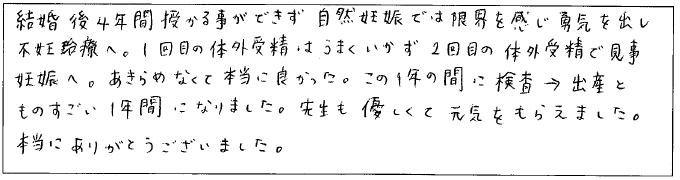 結婚後4年間授かる事ができず 自然妊娠では限界を感じ勇気を出し
不妊診療へ。1回目の体外受精はうまくいかず 2回目の体外受精で見事
妊娠へ。あきらめなくて本当に良かった。この1年の間に検査→出産と
ものすごい1年間になりました。先生も優しくて元気をもらえました。
本当にありがとうございました。